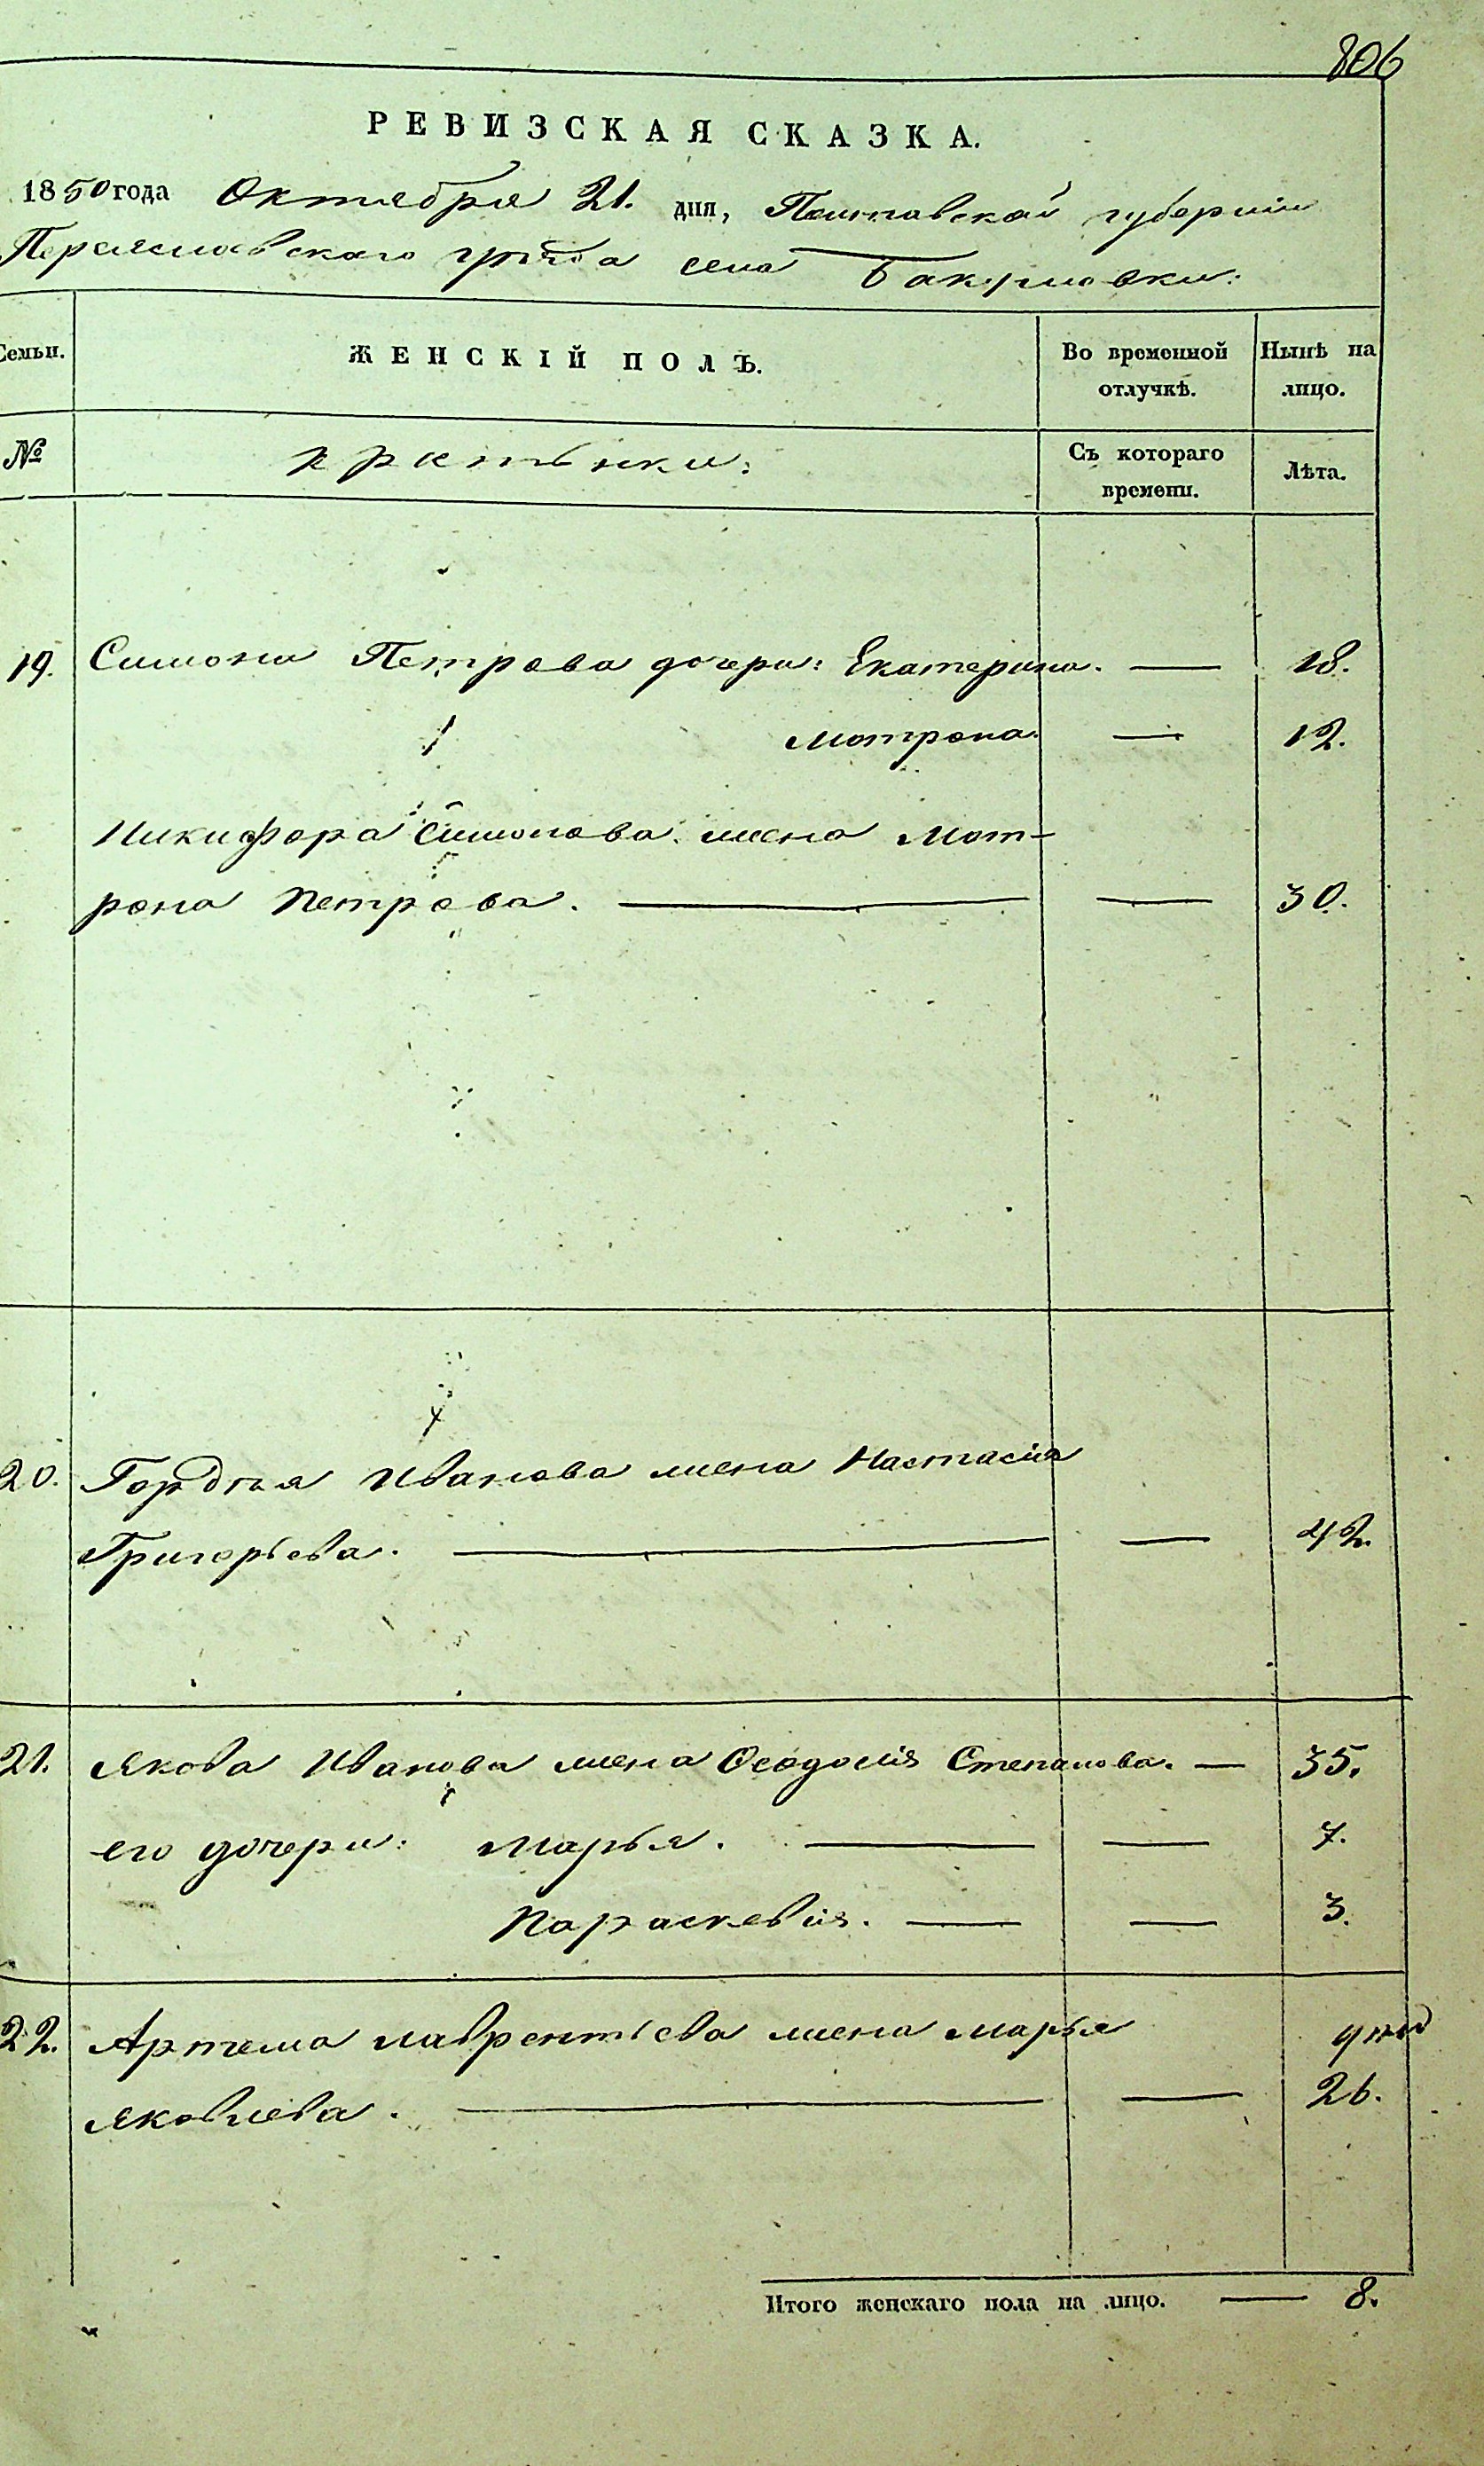 806
РЕВИЗСКАЯ СКАЗКА.
1850 года Октября 21. дня, Полтавской губернiи
Переяславскаго уѣзда села Бакумовки:
Семьи.
ЖЕНСКIЙ ПОЛЪ.
Во временной отлучкѣ.
Нынѣ на лицо.
№
Съ котораго времени.
Лѣта.
19. Симона Петрова дочери: Екатерина. — 18.
Мотрона. — 12.
Никифора Симонова жена Мот-
рона Петрова. — — 30.
20. Гордѣя Иванова жена Настасiя
Григорьева. — — 42.
21. Якова Иванова жена Феодосiя Степанова. — 35.
его дочери: Марья. — — 7.
Параскевiя. — — 3.
22. Артема Лаврентьева жена Марья
Яковлева. — — 26.
Итого женскаго пола на лицо. — 8.